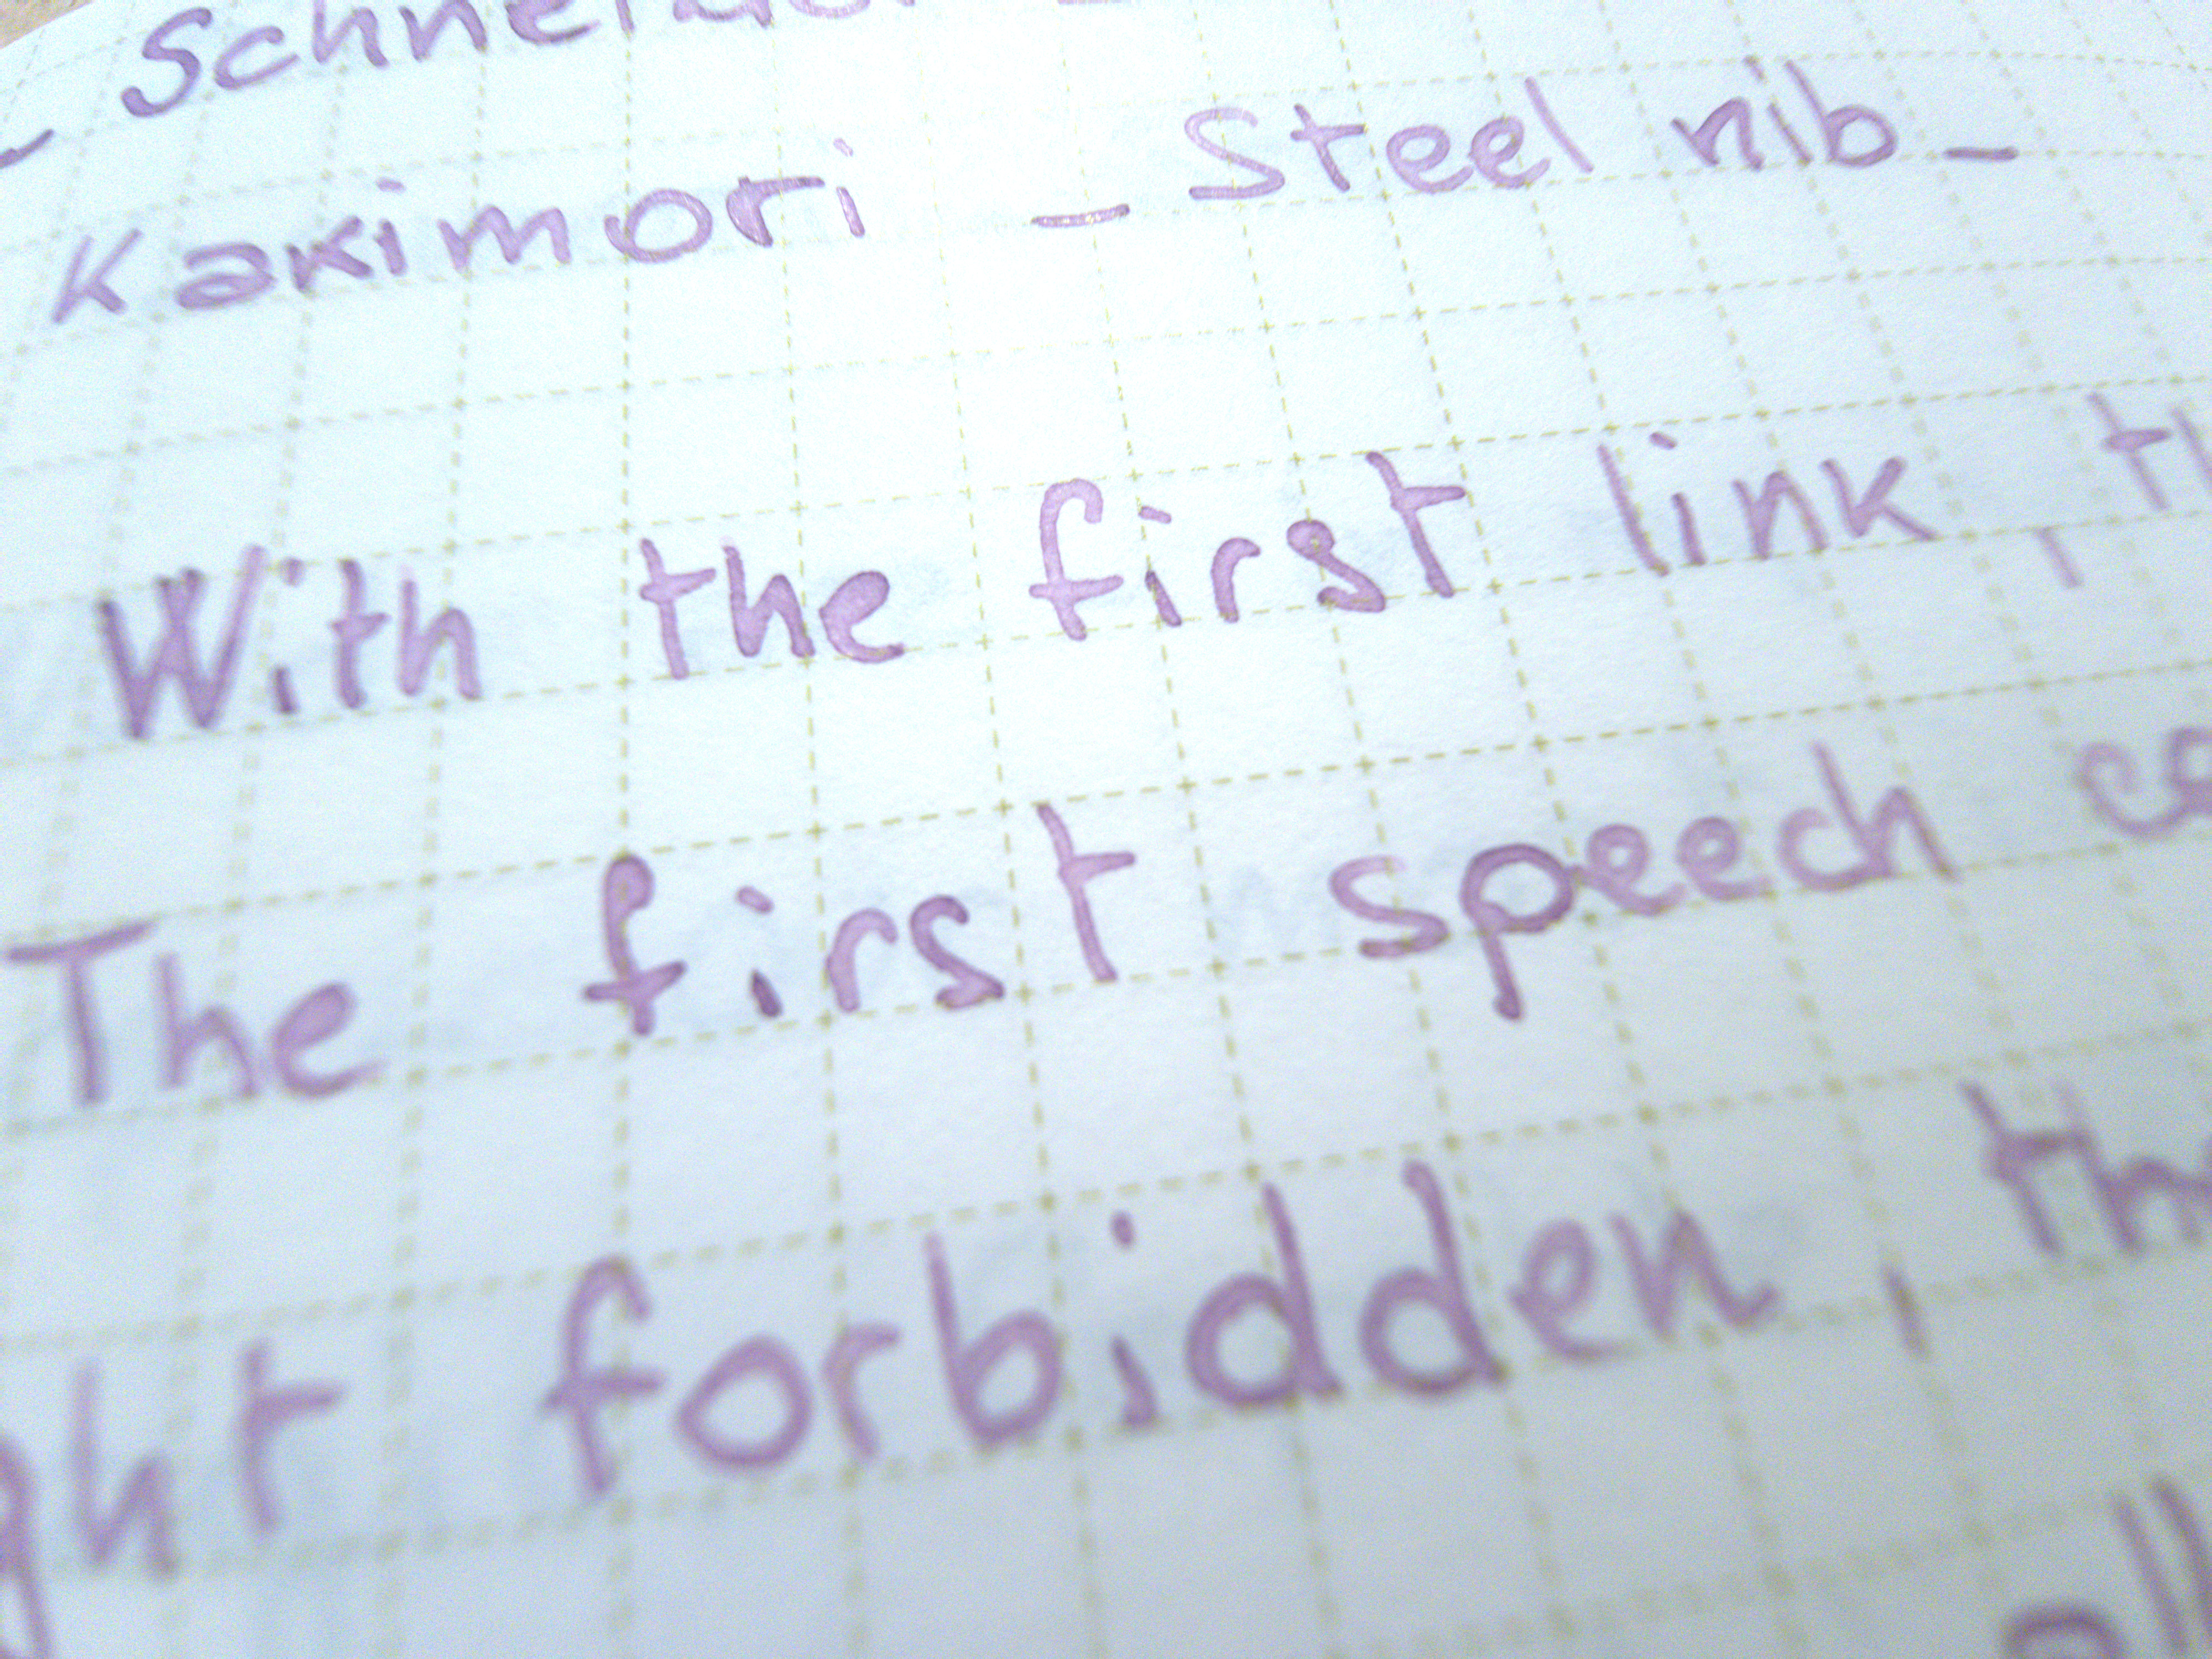 _ Schneider
Kakimori _ Steel nib _
With the first link,
The first speech
forbidden,